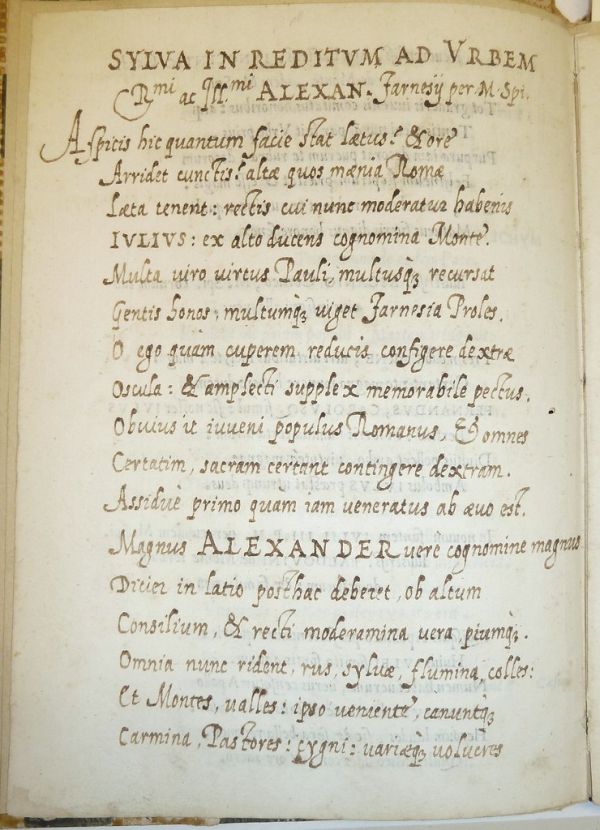 SYLVA IN REDITVM AD VRBEM
Rmi ac Ill.mi ALEXAN. Farnesij per M. Spi.
Aspicis hic quantum facie stat lætus? & ore
Arridet cunctis? altæ quos mænia Romæ
Læta tenent: rectis cui nunc moderatur habenis
IVLIVS: ex alto ducens cognomina Monte.
Multa viro virtus Pauli, multusq́ꝫ recursat
Gentis honos, multumq́ꝫ viget Farnesia Proles.
O ego quàm cuperem reducis configere dextræ
Oscula: & amplecti supplex memorabile pectus.
Obuius ut iuveni populus Romanus, & omnes
Certatim, sacram certant contingere dextram.
Assiduè primo quàm iam veneratus ab ævo est.
Magnus ALEXANDER vere cognomine magnus
Dicier in latio posthac deberet, ob altum
Consilium, & recti moderamina vera, piumq́ꝫ.
Omnia nunc rident, rus, sylvæ, flumina, colles:
Et Montes, valles: ipso veniente, canuntq́ꝫ
Carmina, Pastores: cygni: variæq́ꝫ volucres